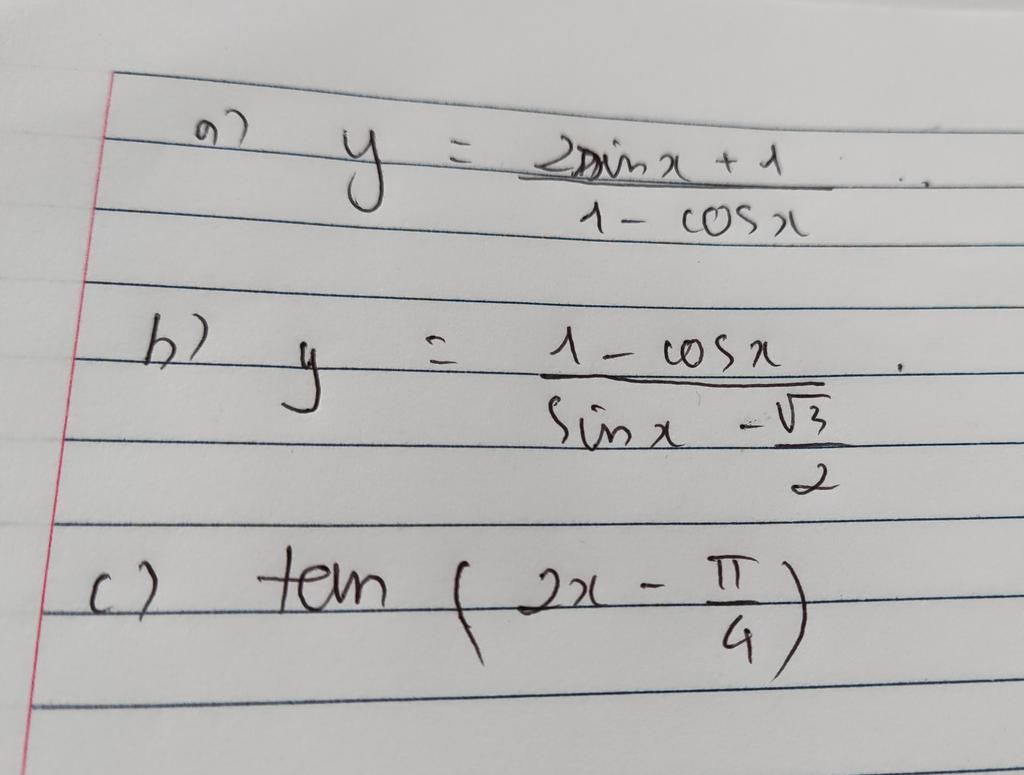 a) y = (2sinx + 1)/(1 - cosx)
b) y = (1 - cosx)/(sinx - √3/2)
c) tan (2x - π/4)